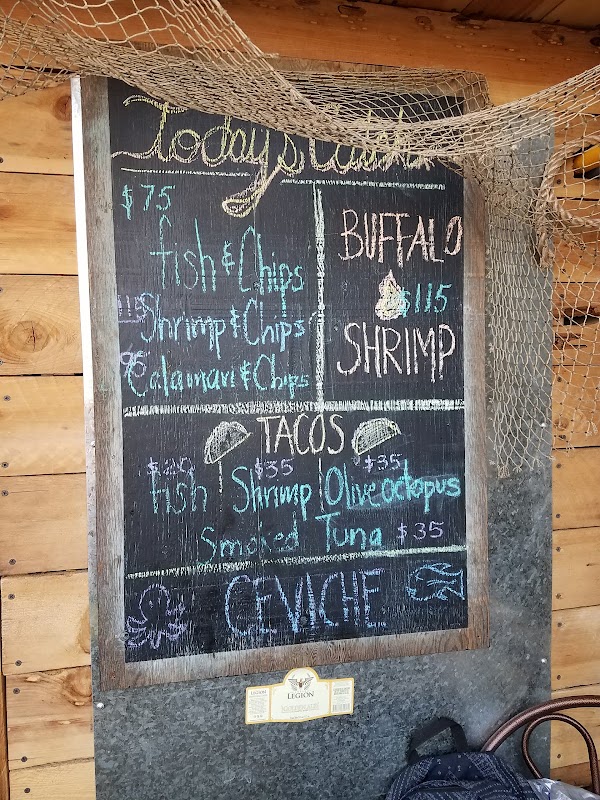 Today's Catch
$75
fish & Chips
115 Shrimp & Chips
95 Calamari & Chips
BUFFALO
$115
SHRIMP
TACOS
$35 $35
fish Shrimp Olive octopus
Smoked Tuna $35
CEVICHE
LEGION